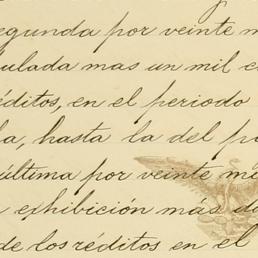 segunda por veinte m
ulada mas un mil c
éditos, en el periodo
la, hasta la del pa
última por veinte mi
exhibición más do
de los réditos en el